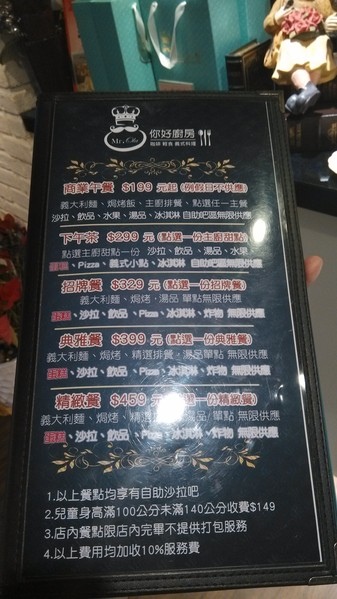 Mr. 
你好廚房
咖啡 輕食 義式料理
商業午餐 $199 元起 (例假日不供應)
義大利麵、焗烤飯、主廚排餐、點選任一主餐
沙拉、飲品、水果、湯品、冰淇淋 自助吧區無限供應
下午茶 $299 元 (點選一份主廚甜點)
點選主廚甜點一份 沙拉、飲品、湯品、水果
蛋糕、Pizza、義式小點、冰淇淋 自助吧區無限供應
招牌餐 $329 元 (點選一份招牌餐)
義大利麵、焗烤，湯品 單點無限供應
蛋糕、沙拉、飲品、Pizza、冰淇淋、炸物 無限供應
典雅餐 $399 元 (點選一份典雅餐)
義大利麵、焗烤、精選排餐，湯品單點 無限供應
蛋糕、沙拉、飲品、Pizza、冰淇淋、炸物 無限供應
精緻餐 $459 選一份精緻餐)
義大利麵、焗烤、精 品/單點 無限供應
蛋糕、沙拉、飲品、Pizza、冰淇淋、炸物 無限供應
1.以上餐點均享有自助沙拉吧
2.兒童身高滿100公分未滿140公分收費$149
3.店內餐點限店內完畢不提供打包服務
4.以上費用均加收10%服務費